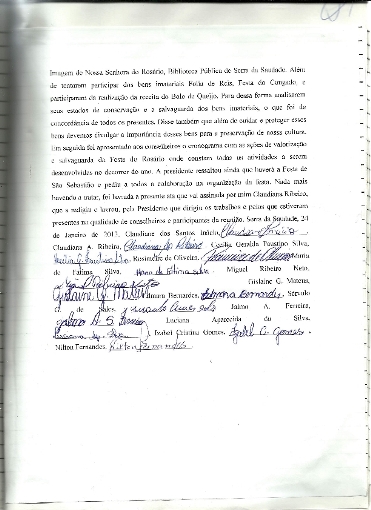 Imagem de Nossa Senhora do Rosário, Biblioteca Pública de Serra da Saudade. Além
de tentarem participar dos bens imateriais Folia de Reis, Festa do Congado, e
participaram da realização da receita do Bolo de Queijo. Para dessa forma analisarem
seus estados de conservação e a salvaguarda dos bens imateriais, o que foi de
concordância de todos os presentes. Disse também que além de cuidar e proteger esses
bens devemos divulgar a importância desses bens para a preservação de nossa cultura.
Em seguida foi apresentado aos conselheiros o cronograma com as ações de valorização
e salvaguarda da Festa do Rosário onde constam todas as atividades a serem
desenvolvidas no decorrer do ano. A presidente ressaltou ainda que haverá a Festa de
São Sebastião e pediu a todos a colaboração na organização da festa. Nada mais
havendo a tratar, foi lavrada a presente ata que vai assinada por mim Claudiana Ribeiro,
que a redigiu e lavrou, pelo Presidente que dirigiu os trabalhos e pelos que estiveram
presentes na qualidade de conselheiros e participantes da reunião. Serra da Saudade, 24
de Janeiro de 2017. Claudiane dos Santos
Claudiana A. Ribeiro, Claudiana A. Ribeiro Cecília Geralda Faustino Silva,
Rosimeire de Oliveira, Maria
de Fátima Silva, Maria de Fátima Silva Miguel Ribeiro Neto,
Gislaine G. Mateus,
Bernardes, Bernardes, Servulo
de Sales, Jaime A. Ferreira,
Luciana Aparecida da Silva,
Izabel Cristina Gomes, Izabel C. Gomes.
Nilton Fernandes, Nilton Fernandes